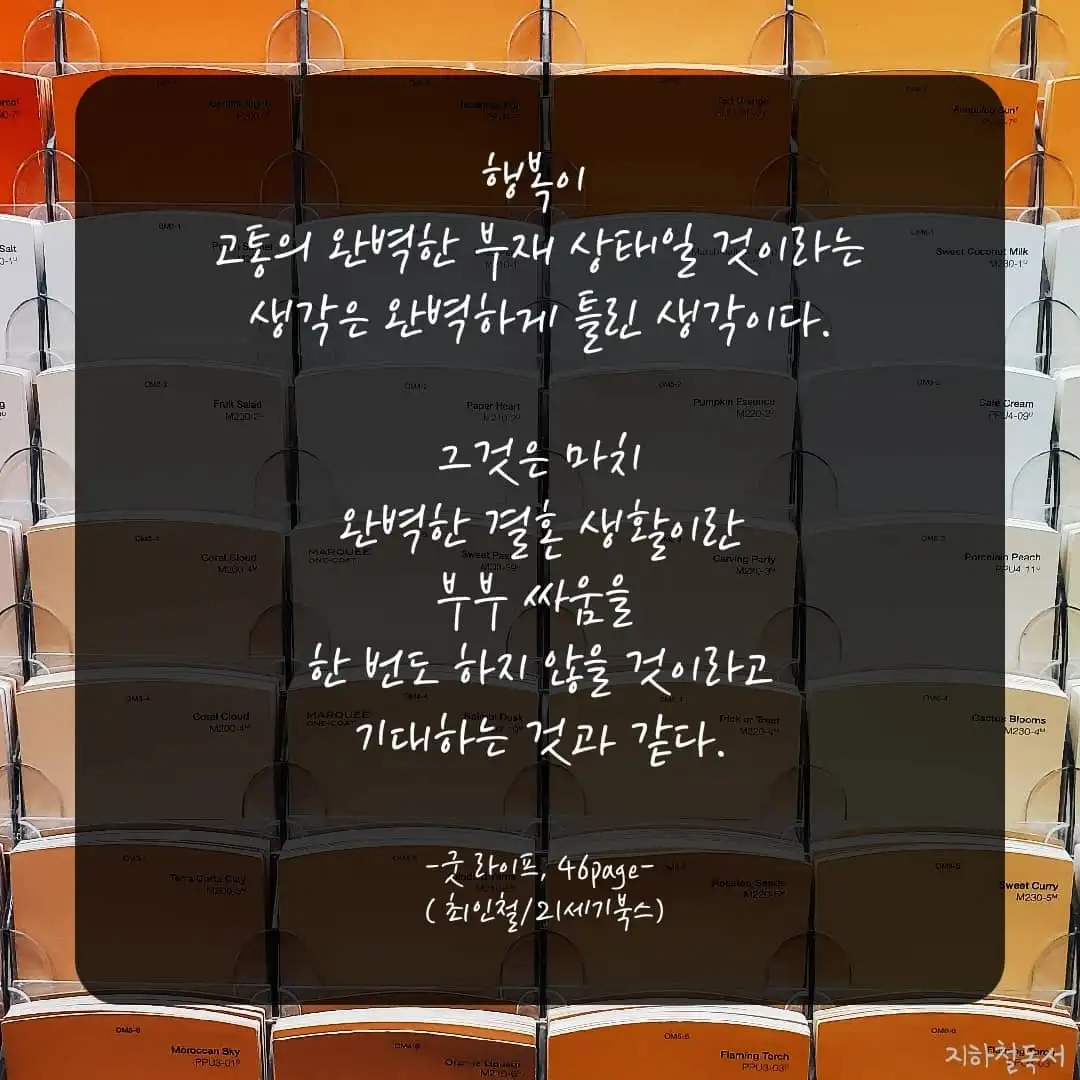 행복이
고통의 완벽한 부재 상태일 것이라는
생각은 완벽하게 틀린 생각이다.
그것은 마치
완벽한 결혼 생활이란
부부 싸움을
한 번도 하지 않을 것이라고
기대하는 것과 같다.
-굿 라이프, 46page-
( 최인철/21세기북스)
Sweet Coconut Milk
M230-1ᵁ
Fruit Salad
M200-2ᵁ
Paper Heart
M210-2ᵁ
Pumpkin Essence
M220-2ᵁ
Cafe Cream
PPU4-09ᵁ
Coral Cloud
M200-4ᴹ
MARQUEE
ONE-COAT
Carving Party
M220-3ᴹ
Porcelain Peach
PPU4-11ᵁ
Coral Cloud
M200-4ᴹ
MARQUEE
ONE-COAT
Trick or Treat
M220-4ᴹ
Cactus Blooms
M230-4ᴹ
Terra Cotta Clay
Sweet Curry
M230-5ᴹ
Moroccan Sky
PPU3-01ᴰ
Flaming Torch
지하철독서